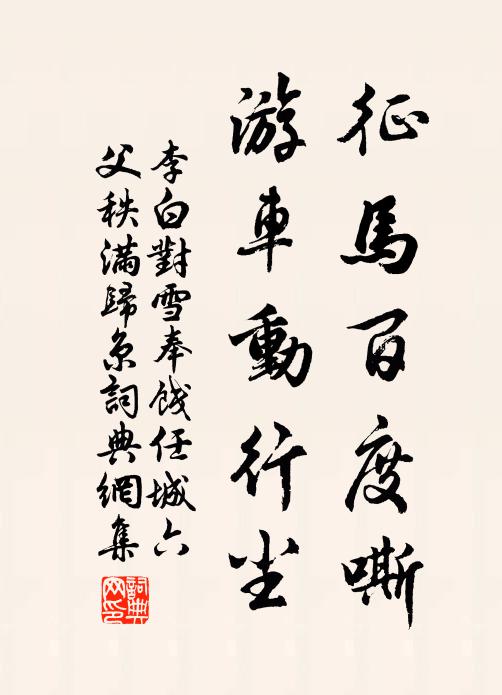 征馬百度嘶
游車動行尘
李白對雪奉餞任城六
父秩滿歸京詞典網集
詞典网印